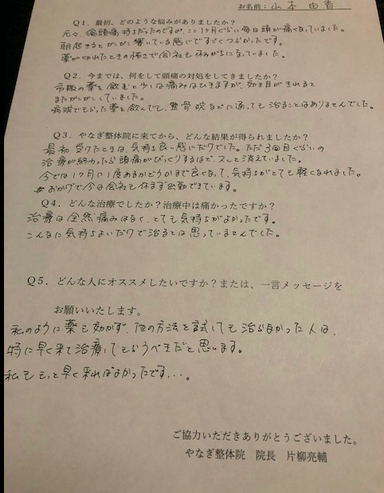 お名前:山本 由香
Q1. 最初、どのような悩みがありましたか?
元々、偏頭痛持ちだったのですが、ここ1ヶ月ぐらい、毎日頭が痛くなっていました。
朝起きるとガンガン響いている感じですごくつらかったです。
薬が切れたときの怖さで会社も休みがちになっていました。
Q2. 今までは、何をして頭痛の対処をしてきましたか?
市販の薬を飲むと少しは痛みはひきますが、効き目がきれると
またガンガンしていました。
病院でもらった薬を飲んでも、整骨院などに通っても治ることはありませんでした。
Q3. やなぎ整体院に来てから、どんな結果が得られましたか?
最初受けたときは、気持ち良い感じだけでした。ただ3回目ぐらいの
治療が終わったら頭痛がびっくりするほどスッと消えていました。
今では1ヶ月に1度あるかどうかまで良くなって、気持ちがとても軽くなれました。
おかげで今は会社も休まず出勤できています。
Q4. どんな治療でしたか?治療中は痛かったですか?
治療は全然痛みはなく、とても気持ちがよかったです。
こんなに気持ちよいだけで治るとは思っていませんでした。
Q5. どんな人にオススメしたいですか?または、一言メッセージを
お願いいたします。
私のように薬も効かず、他の方法を試しても治らなかった人は、
特に早く来て治療してもらうべきだと思います。
私ももっと早く来ればよかったです…。
ご協力いただきありがとうございました。
やなぎ整体院 院長 片柳亮輔